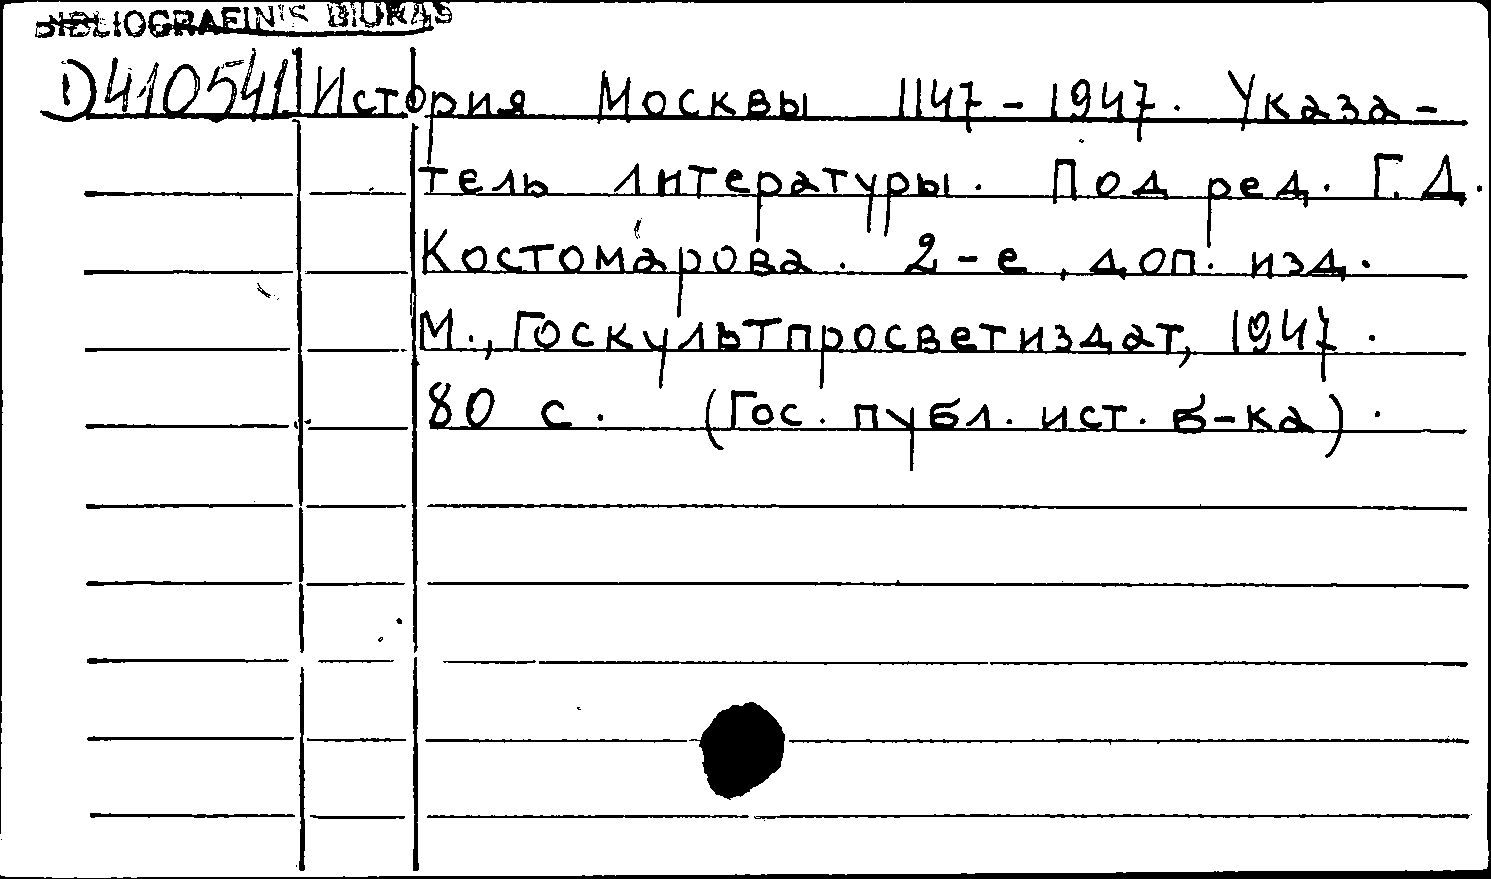 BIBLIOGRAFINIS BIURAS
D410541 История Москвы 1147-1947. Указа-
тель литературы. Под ред. Г.Д.
Костомарова. 2-е, доп. изд.
М., Госкультпросветиздат, 1947.
80 с. (Гос. публ. ист. б-ка).